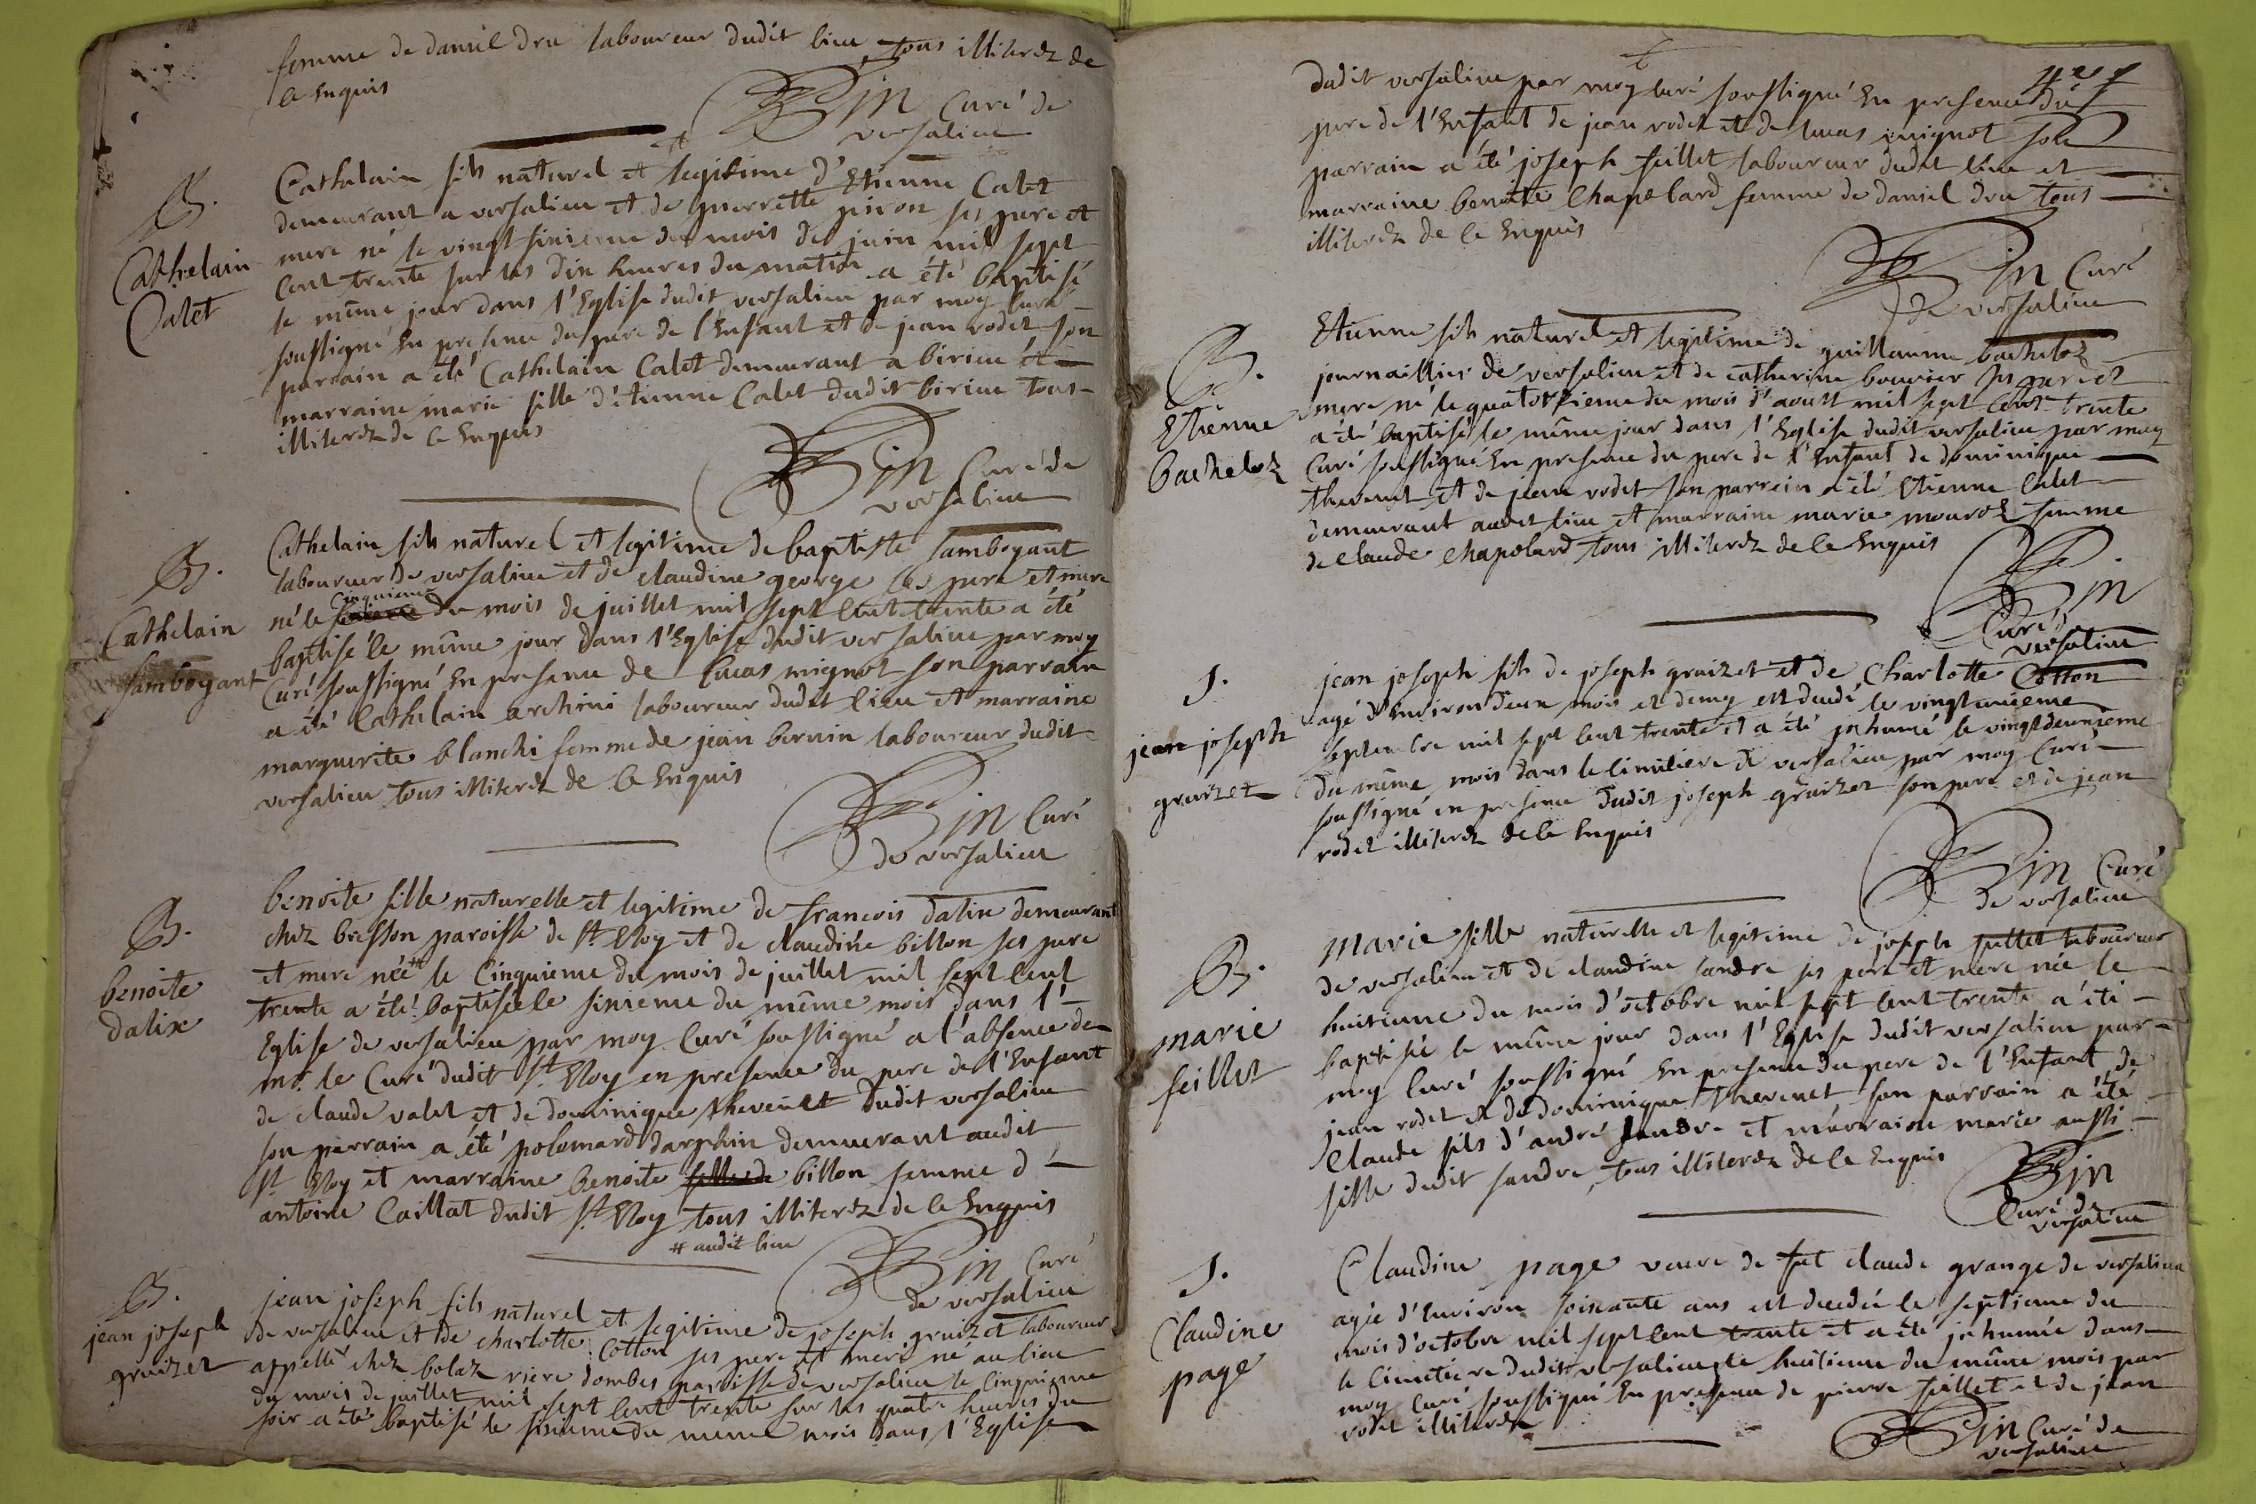 femme de daniel dru laboureur dudit lieu tous illiterez de
ce Enquis
Bin Curé de
versalieu
B.
Cathelain
Calet
Cathelain fils naturel et legitime d'Etienne Calet
demeurant a versalieu et de pierrette piron ses pere et
mere né le vingt sixieme du mois de juin mil sept
cent trente sur les dix heures du matin a été baptisé
le même jour dans l'Eglise dudit versalieu par moy Curé
soussigné En presence du pere de l'Enfant et de jean rodet son
parrain a été Cathelain Calet demeurant a birieu et
marraine marie fille d'étienne Calet dudit birieu tous
illiterez de ce Enquis
Bin Curé de
versalieu
B.
Cathelain
jamboyant
Cathelain fils naturel et legitime de baptiste jamboyant
laboureur de versalieu et de claudine george ses pere et mere
né le cinquieme du mois de juillet mil sept cent trente a été
baptisé le même jour dans l'Eglise dudit versalieu par moy
Curé soussigné En presence de lucas mignot son parrain
a été Cathelain archini laboureur dudit lieu et marraine
marguerite blanchi femme de jean bernin laboureur dudit
versalieu tous illiterez de ce Enquis
Bin Curé
de versalieu
B.
benoite
dalix
benoite fille naturelle et legitime de francois dalix demeurant
chez bresson paroisse de st Eloy et de claudine billon ses pere
et mere née # le Cinquieme du mois de juillet mil sept cent
trente a été baptisée le sixieme du même mois dans l'
Eglise de versalieu par moy Curé soussigné a l'absence de
mr. le Curé dudit st Eloy en presence du pere de l'Enfant
de claude valet et de dominique thevenet dudit versalieu
son parrain a été polemard darphin demeurant audit
st Eloy et marraine benoite fille de billon femme d'
antoine Caillat dudit st Eloy tous illiterez de ce Enquis
# audit lieu
Bin Curé
de versalieu
B.
jean joseph
gruizet
jean joseph fils naturel et legitime de joseph gruizet laboureur
de versalieu et de charlotte Cotton ses pere et mere né au lieu
appellé chez bolaz riere dombes paroisse de versalieu le Cinquieme
du mois de juillet mil sept cent trente sur les quatre heures du
soir a été baptisé le sixieme du meme mois dans l'Eglise
dudit versalieu par moy Curé soussigné En presence du
pere de l'Enfant de jean rodet et de lucas mignot son
parrain a été joseph feillet laboureur dudit lieu et
marraine benoite Chapelard femme de daniel dru tous
illiterez de ce Enquis
Bin Curé
de versalieu
B.
Etienne
bacheloz
Etienne fils naturel et legitime de guillaume bacheloz
journaillier de versalieu et de catherine bouvier ses pere et
mere né le quatorzieme du mois d'aoust mil sept cent trente
a été baptisé le même jour dans l'Eglise dudit versalieu par moy
Curé soussigné En presence du pere de l'Enfant de dominique
thevenet et de jean rodet son parrein a été Etienne Calet
demeurant audit lieu et marraine marie mouroz femme
de Claude chapolard tous illiterez de ce Enquis
Bin
Curé de
versalieu
S.
jean joseph
gruizet
jean joseph fils de joseph gruizet et de Charlotte Cotton
agé d'Environ deux mois et demy est decedé le vingtunieme
septembre mil sept cent trente et a été inhumé le vingtdeuxieme
du même mois dans le Cimitiere de versalieu par moy Curé
soussigné en presence dudit joseph gruizet son pere et de jean
rodet illiterez de ce Enquis
Bin Curé
de versalieu
B.
marie
feillet
Marie fille naturelle et legitime de joseph feillet laboureur
de versalieu et de claudine sandre ses pere et mere née le
huitieme du mois d'octobre mil sept cent trente a été
baptisée le même jour dans l'Eglise dudit versalieu par
moy Curé soussigné En presence du pere de l'Enfant de
jean rodet et de dominique thevenet son parrain a été
Claude fils d'andré sandre et marraine marie aussi
fille dudit sandre tous illiterez de ce Enquis
Bin
Curé de
versalieu
S.
Claudine
page
Claudine page veuve de fut claude grange de versalieu
agée d'Environ soixante ans est decedée le septieme du
mois d'octobre mil sept cent trente et a été inhumée dans
le Cimetiere dudit versalieu le huitieme du même mois par
moy Curé soussigné En presence de pierre feillet et de jean
rodet illiterez
Bin Curé de
versalieu